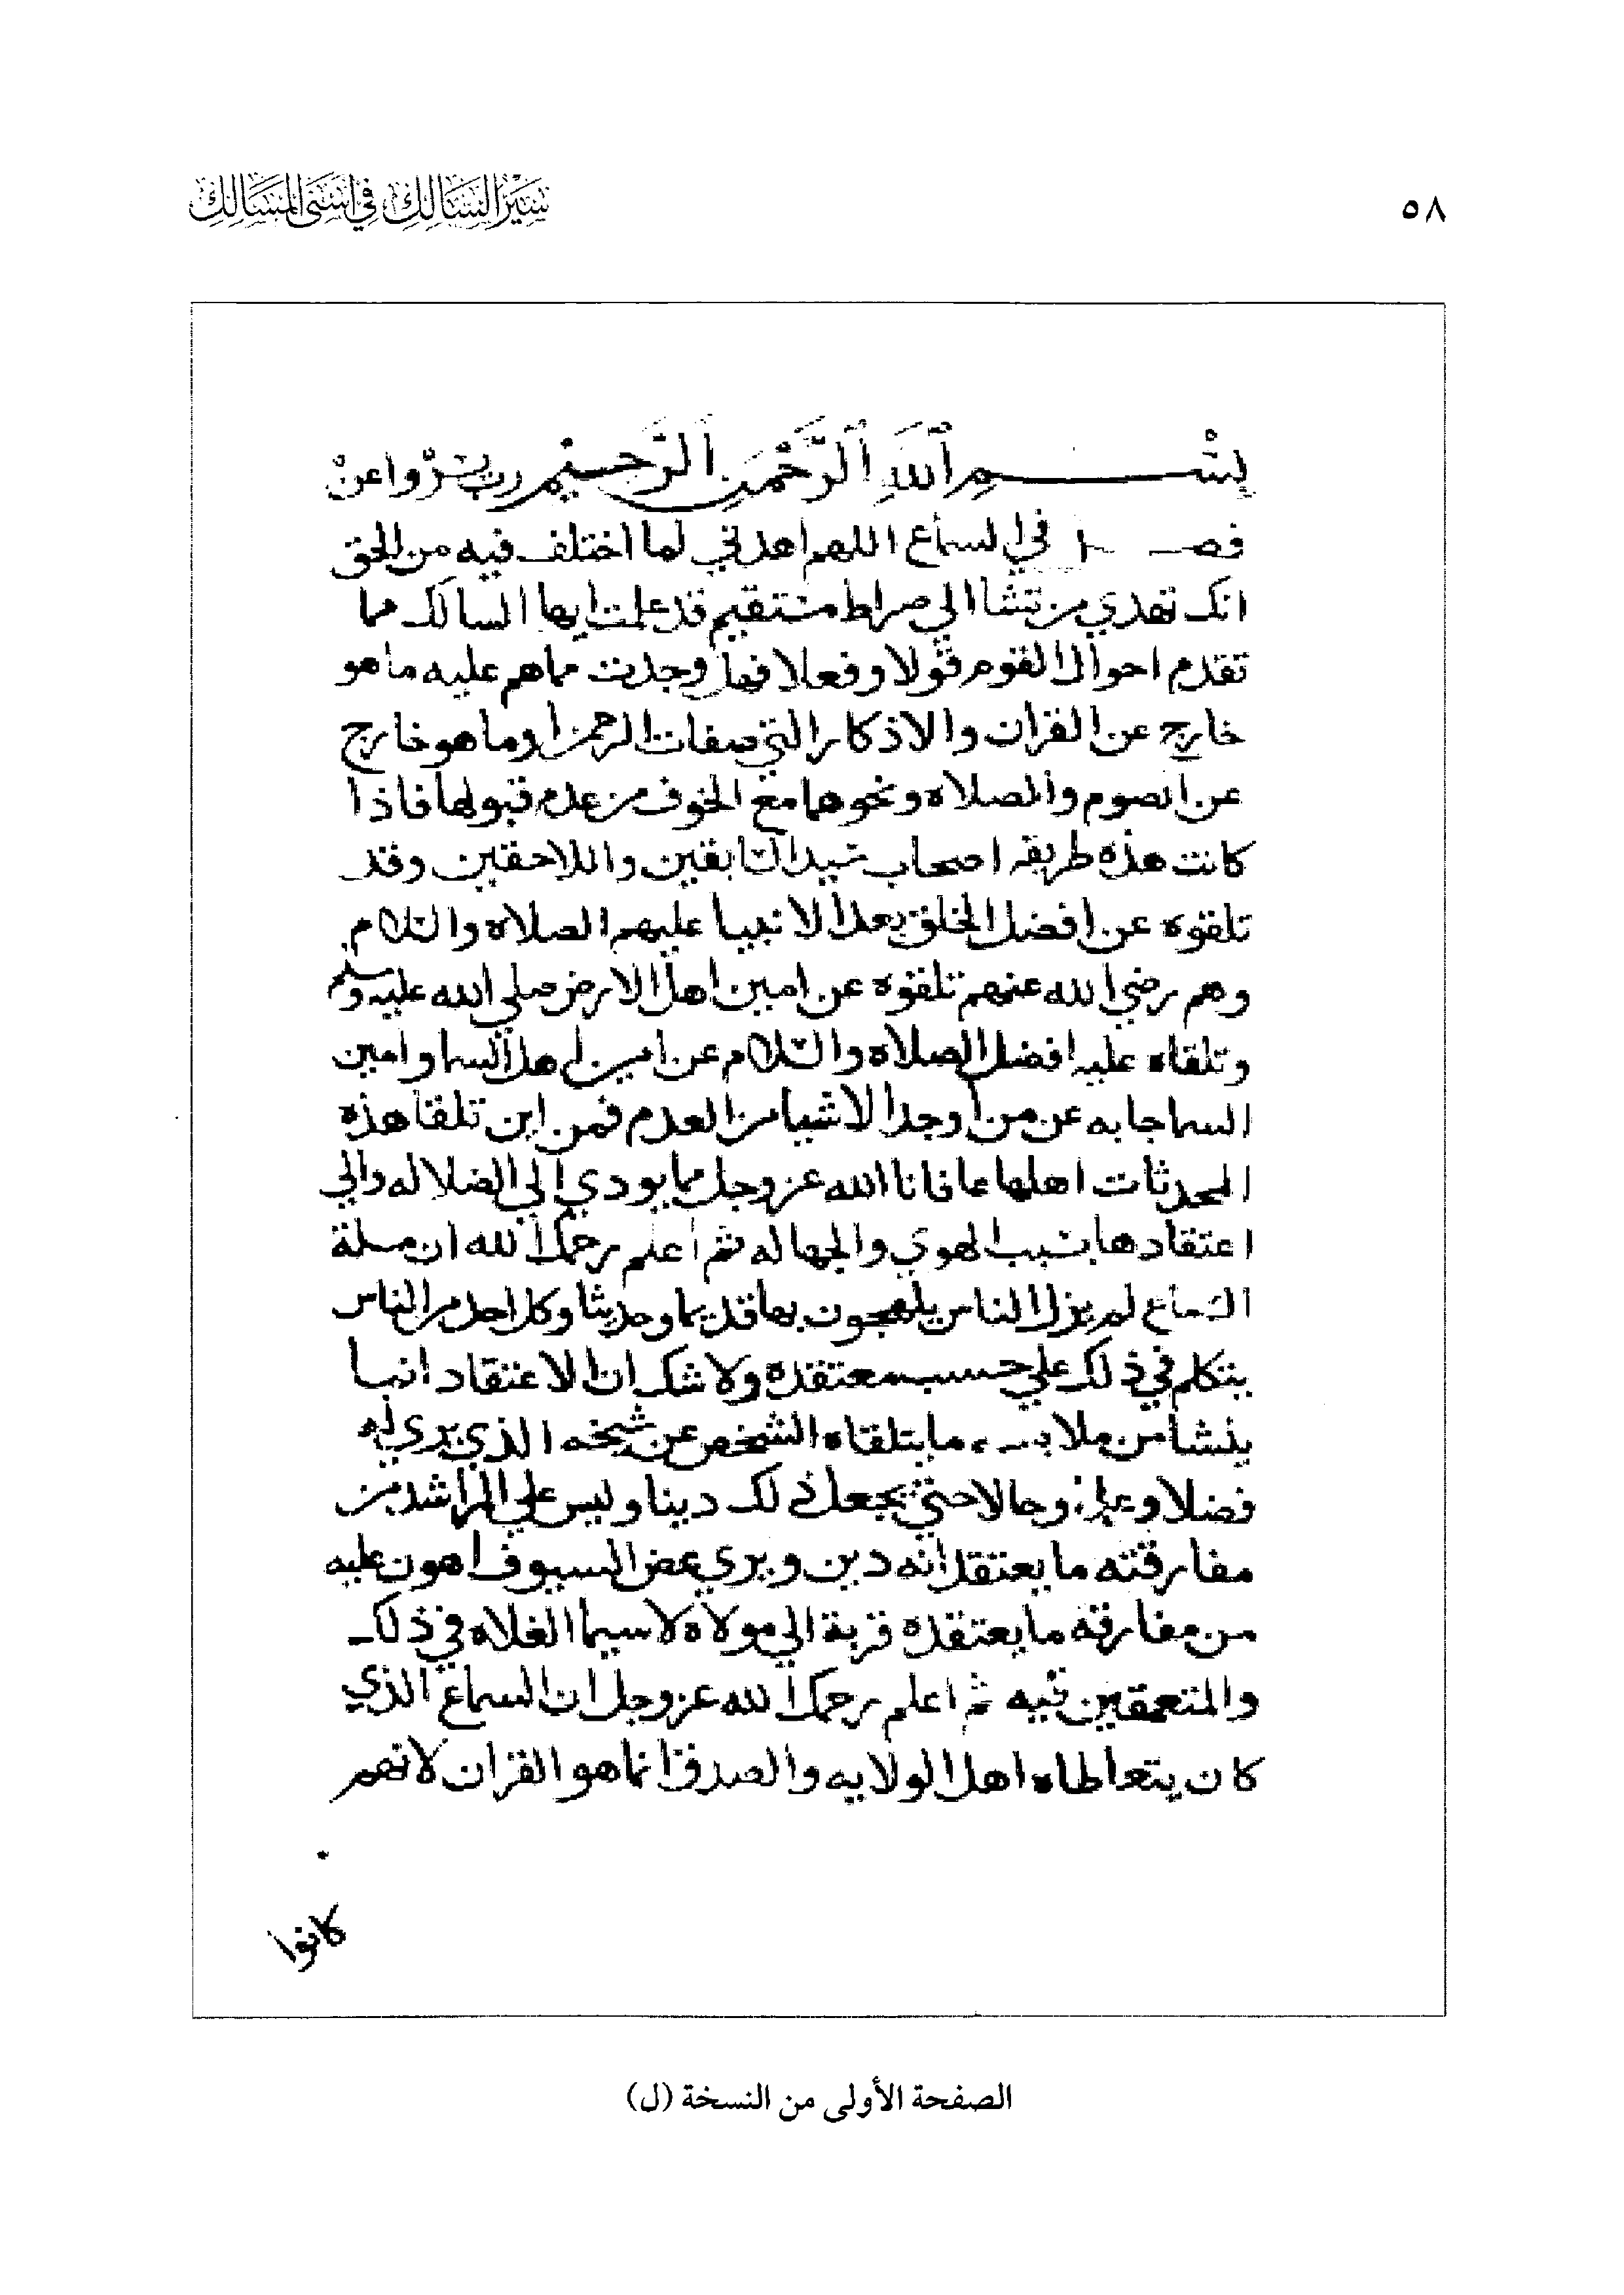 ٥٨
سير السالك في أسنى المسالك
بسم الله الرحمن الرحيم رب يسر واعن
فصل في السماع اللهم اهدني لما اختلف فيه من الحق
انك تهدي من تشا الي صراط مستقيم قد علمت ايها السالك مما
تقدم احوال القوم قولا وفعلا فهل وجدت مما هم عليه ما هو
خارج عن القران والاذكار التي صفات الرحمن او ما هو خارج
عن الصوم والصلاه ونحوها مع الخوف من عدم قبولها فاذا
كانت هذه طريقه اصحاب سيد السابقين واللاحقين وقد
تلقوه عن افضل الخلق بعد الانبيا عليهم الصلاه والسلام
وهم رضي الله عنهم تلقوه عن امين اهل الارض صلي الله عليه وسلم
وتلقاه عليه افضل الصلاه والسلام عن امين اهل السما وامين
السما جا به عن من اوجد الاشيا من العدم فمن اين تلقا هذه
المحدثات اهلها عافانا الله عز وجل مما يودي الي الضلاله والي
اعتقادها بسبب الهوي والجهاله ثم اعلم رحمك الله ان مسلة
السماع لم يزل الناس يلهجون بها قديما وحديثا وكل احد من الناس
يتكلم في ذلك علي حسب معتقده ولا شك ان الاعتقاد انما
ينشا من ما يتلقاه الشخص عن شيخه الذي يري له
فضلا وعلما وحالا حتي يجعل ذلك دينا وليس علي المرا شد من
مفارقته ما يعتقد انه دين ويري عض السيوف اهون عليه
من مفارقة ما يعتقده قربة الي مولاه لا سيما الغلاه في ذلك
والمتعمقين فيه ثم اعلم رحمك الله عز وجل ان السماع الذي
كان يتعاطاه اهل الولايه والصدق انما هو القران لانهم
كانوا
الصفحة الأولى من النسخة (ل)